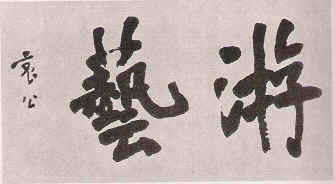 游藝
袁公